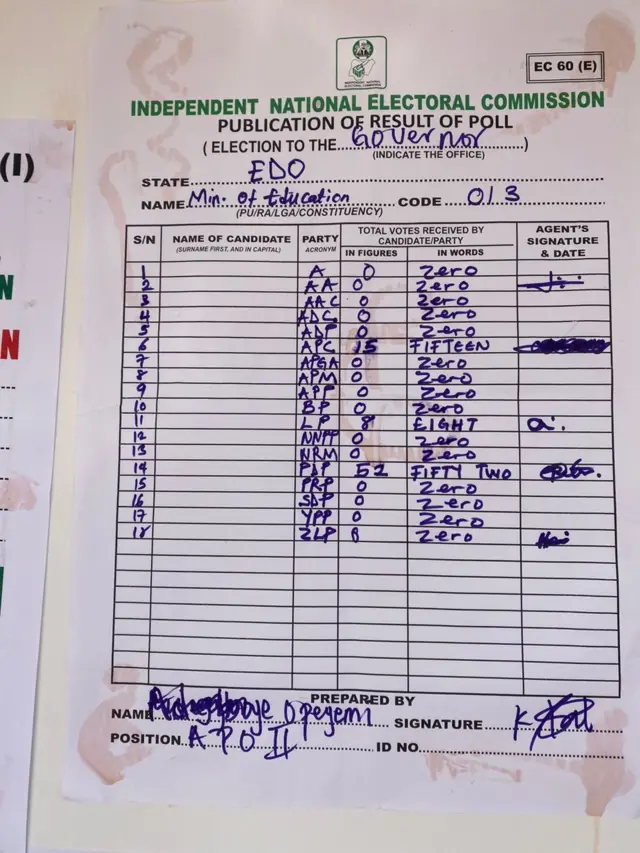 (I)
N
N
INDEPENDENT NATIONAL ELECTORAL COMMISSION
EC 60 (E)
INDEPENDENT NATIONAL ELECTORAL COMMISSION
PUBLICATION OF RESULT OF POLL
( ELECTION TO THE Governor )
(INDICATE THE OFFICE)
STATE EDO
NAME Min. of Education CODE 013
(PU/RA/LGA/CONSTITUENCY)
S/N NAME OF CANDIDATE (SURNAME FIRST, AND IN CAPITAL) PARTY ACRONYM TOTAL VOTES RECEIVED BY CANDIDATE/PARTY IN FIGURES IN WORDS AGENT'S SIGNATURE & DATE
1 A 0 Zero
2 AA 0 Zero
3 AAC 0 Zero
4 ADC 0 Zero
5 ADP 0 Zero
6 APC 15 FIFTEEN
7 APGA 0 Zero
8 APM 0 Zero
9 APP 0 Zero
10 BP 0 Zero
11 LP 8 EIGHT
12 NNPP 0 Zero
13 NRM 0 Zero
14 PDP 52 FIFTY TWO
15 PRP 0 Zero
16 SDP 0 Zero
17 YPP 0 Zero
18 ZLP Zero
PREPARED BY
NAME Opeyemi SIGNATURE
POSITION APO II ID NO